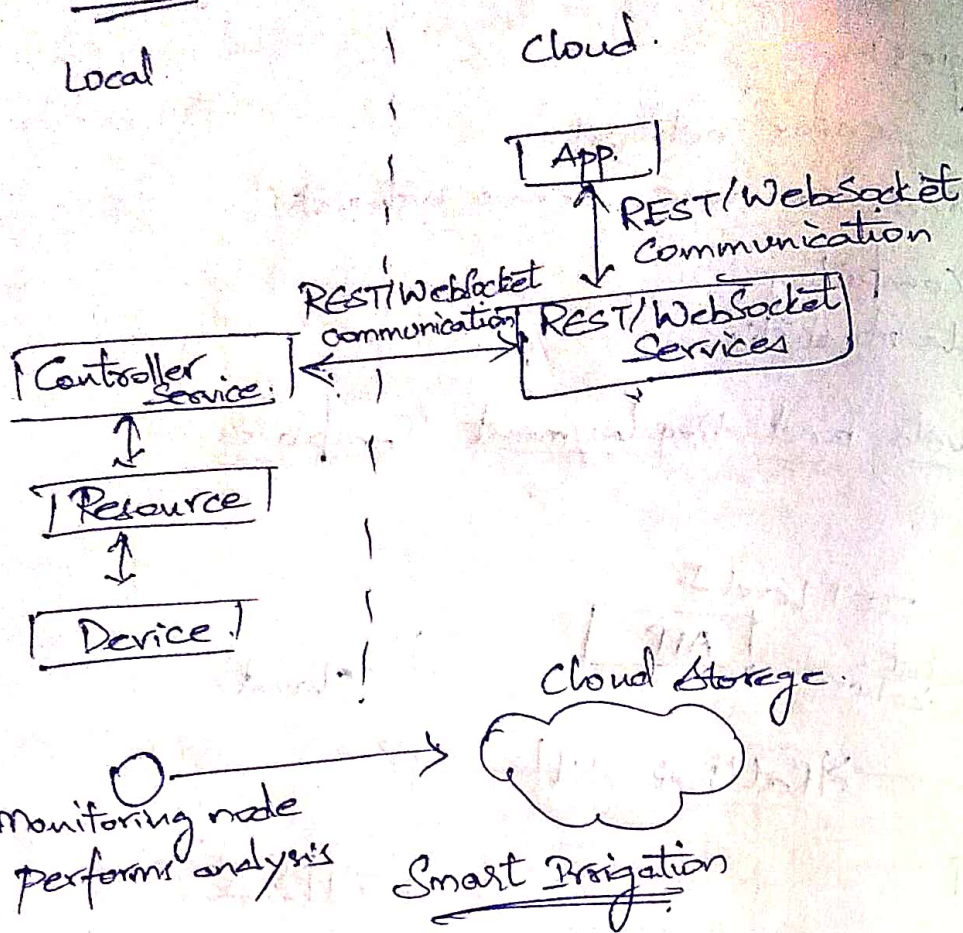 Local
Cloud.
App.
REST/WebSocket
Communication
REST/WebSocket
communication
REST/WebSocket
Services
Controller
Service.
Resource
Device
Cloud Storage.
Monitoring node
performs analysis
Smart Irrigation